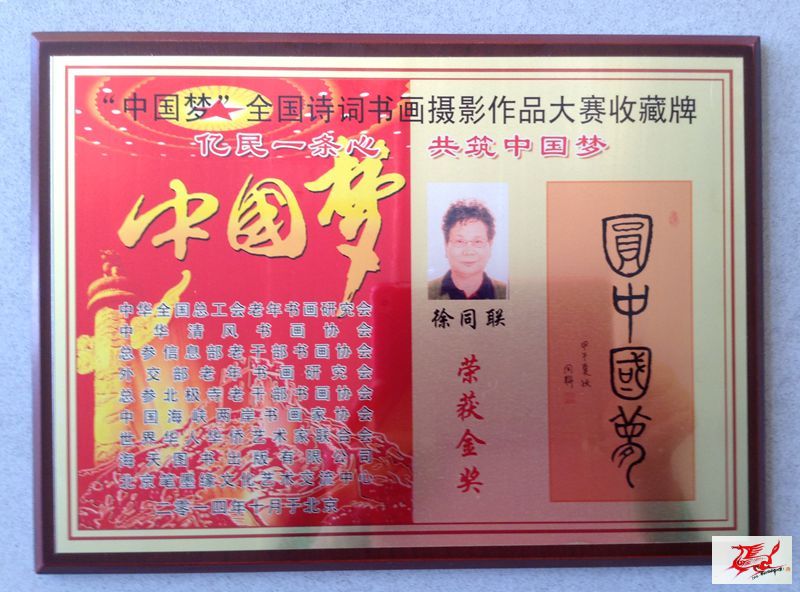 “中国梦”全国诗词书画摄影作品大赛收藏牌
亿民一条心 共筑中国梦
中国梦
中华全国总工会老年书画研究会
中华清风书画协会
总参信息部老干部书画协会
外交部老年书画研究会
总参北极寺老干部书画协会
中国海峡两岸书画家协会
世界华人华侨艺术家联合会
海天图书出版有限公司
北京笔墨缘文化艺术交流中心
二零一四年十月于北京
徐同联
荣获金奖
圓中國夢